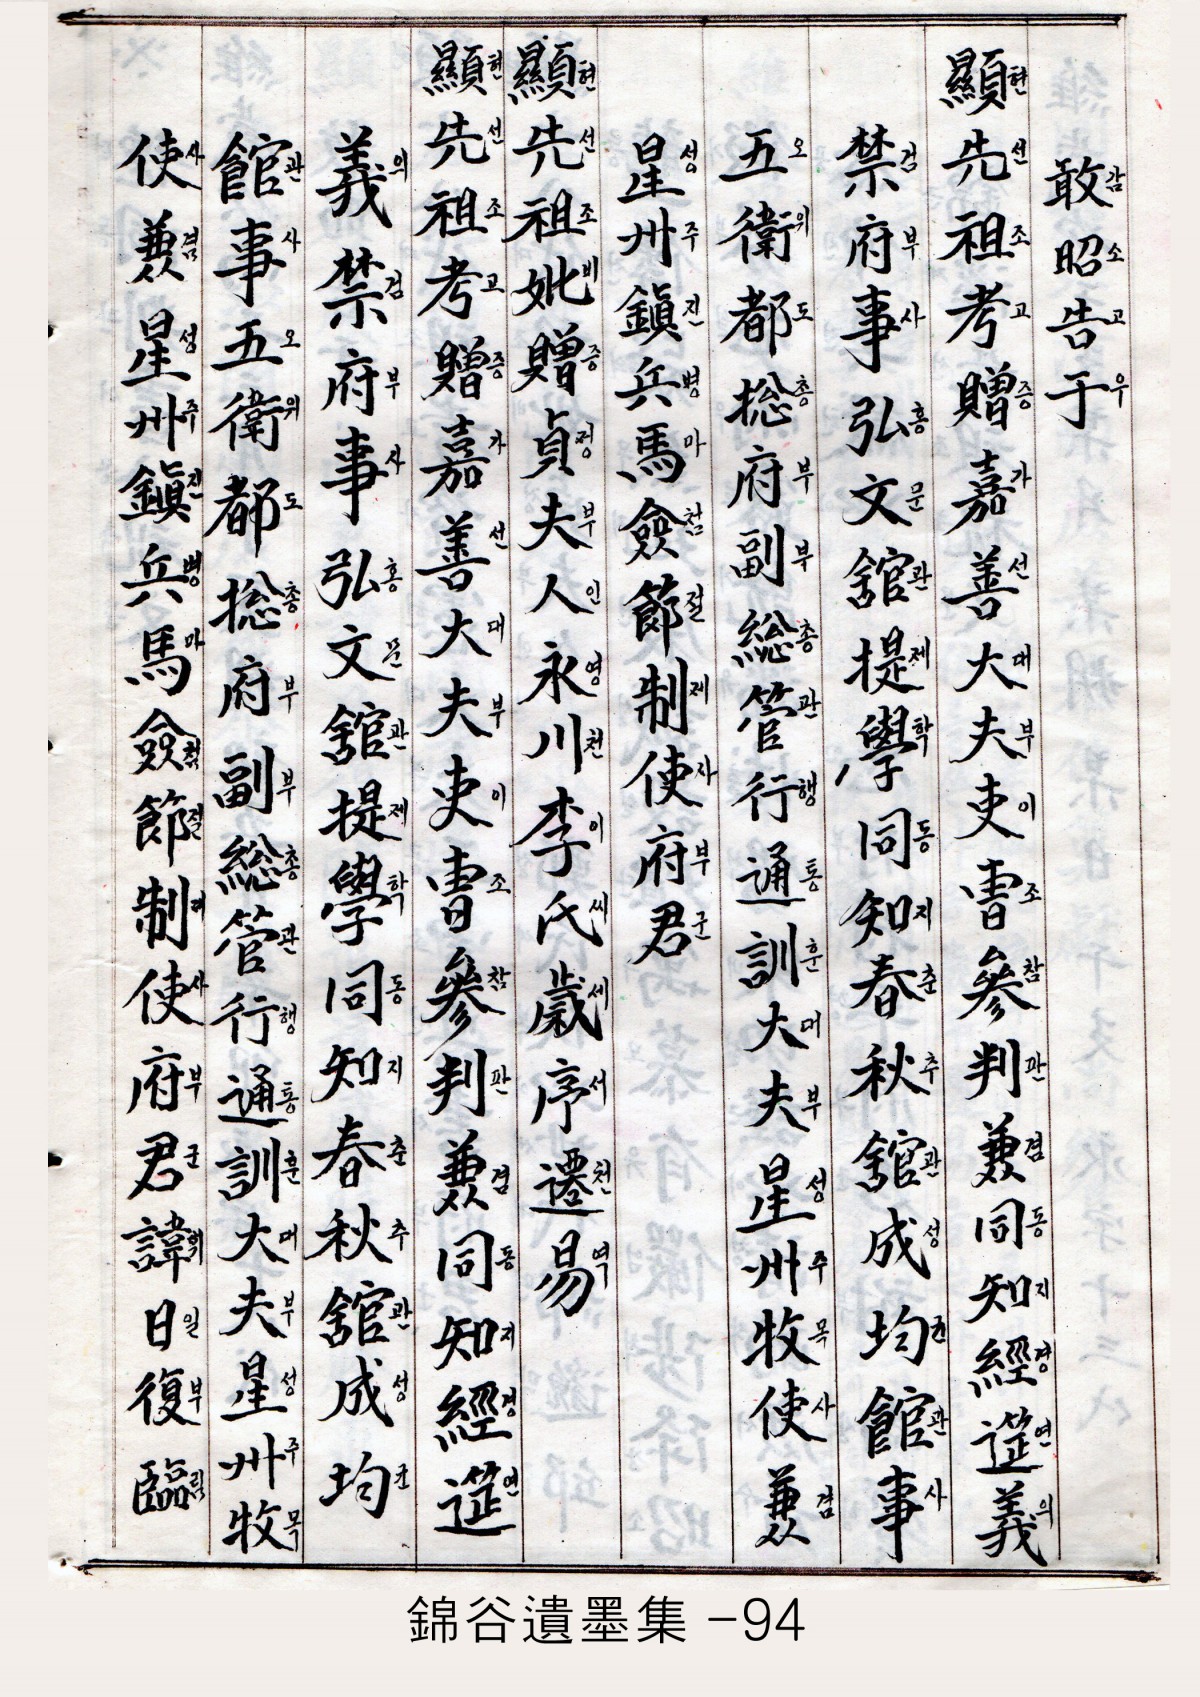 敢昭告于
감소고우
顯先祖考贈嘉善大夫吏曺參判兼同知經筵義
현선조고증가선대부이조참판겸동지경연의
禁府事弘文舘提學同知春秋舘成均館事
검부사홍문관제학동지춘추관성균관사
五衛都摠府副總管行通訓大夫星州牧使兼
오위도총부부총관행통훈대부성주목사겸
星州鎭兵馬僉節制使府君
성주진병마첨절제사부군
顯先祖妣贈貞夫人永川李氏歲序遷易
현선조비증정부인영천이씨세서천역
顯先祖考贈嘉善大夫吏曺參判兼同知經筵
현선조고증가선대부이조참판겸동지경연
義禁府事弘文舘提學同知春秋舘成均
의검부사홍문관제학동지춘추관성균
館事五衛都摠府副總管行通訓大夫星州牧
관사오위도총부부총관행통훈대부성주목
使兼星州鎭兵馬僉節制使府君諱日復臨
사겸성주진병마첨절제사부군휘일부림
錦谷遺墨集 -94